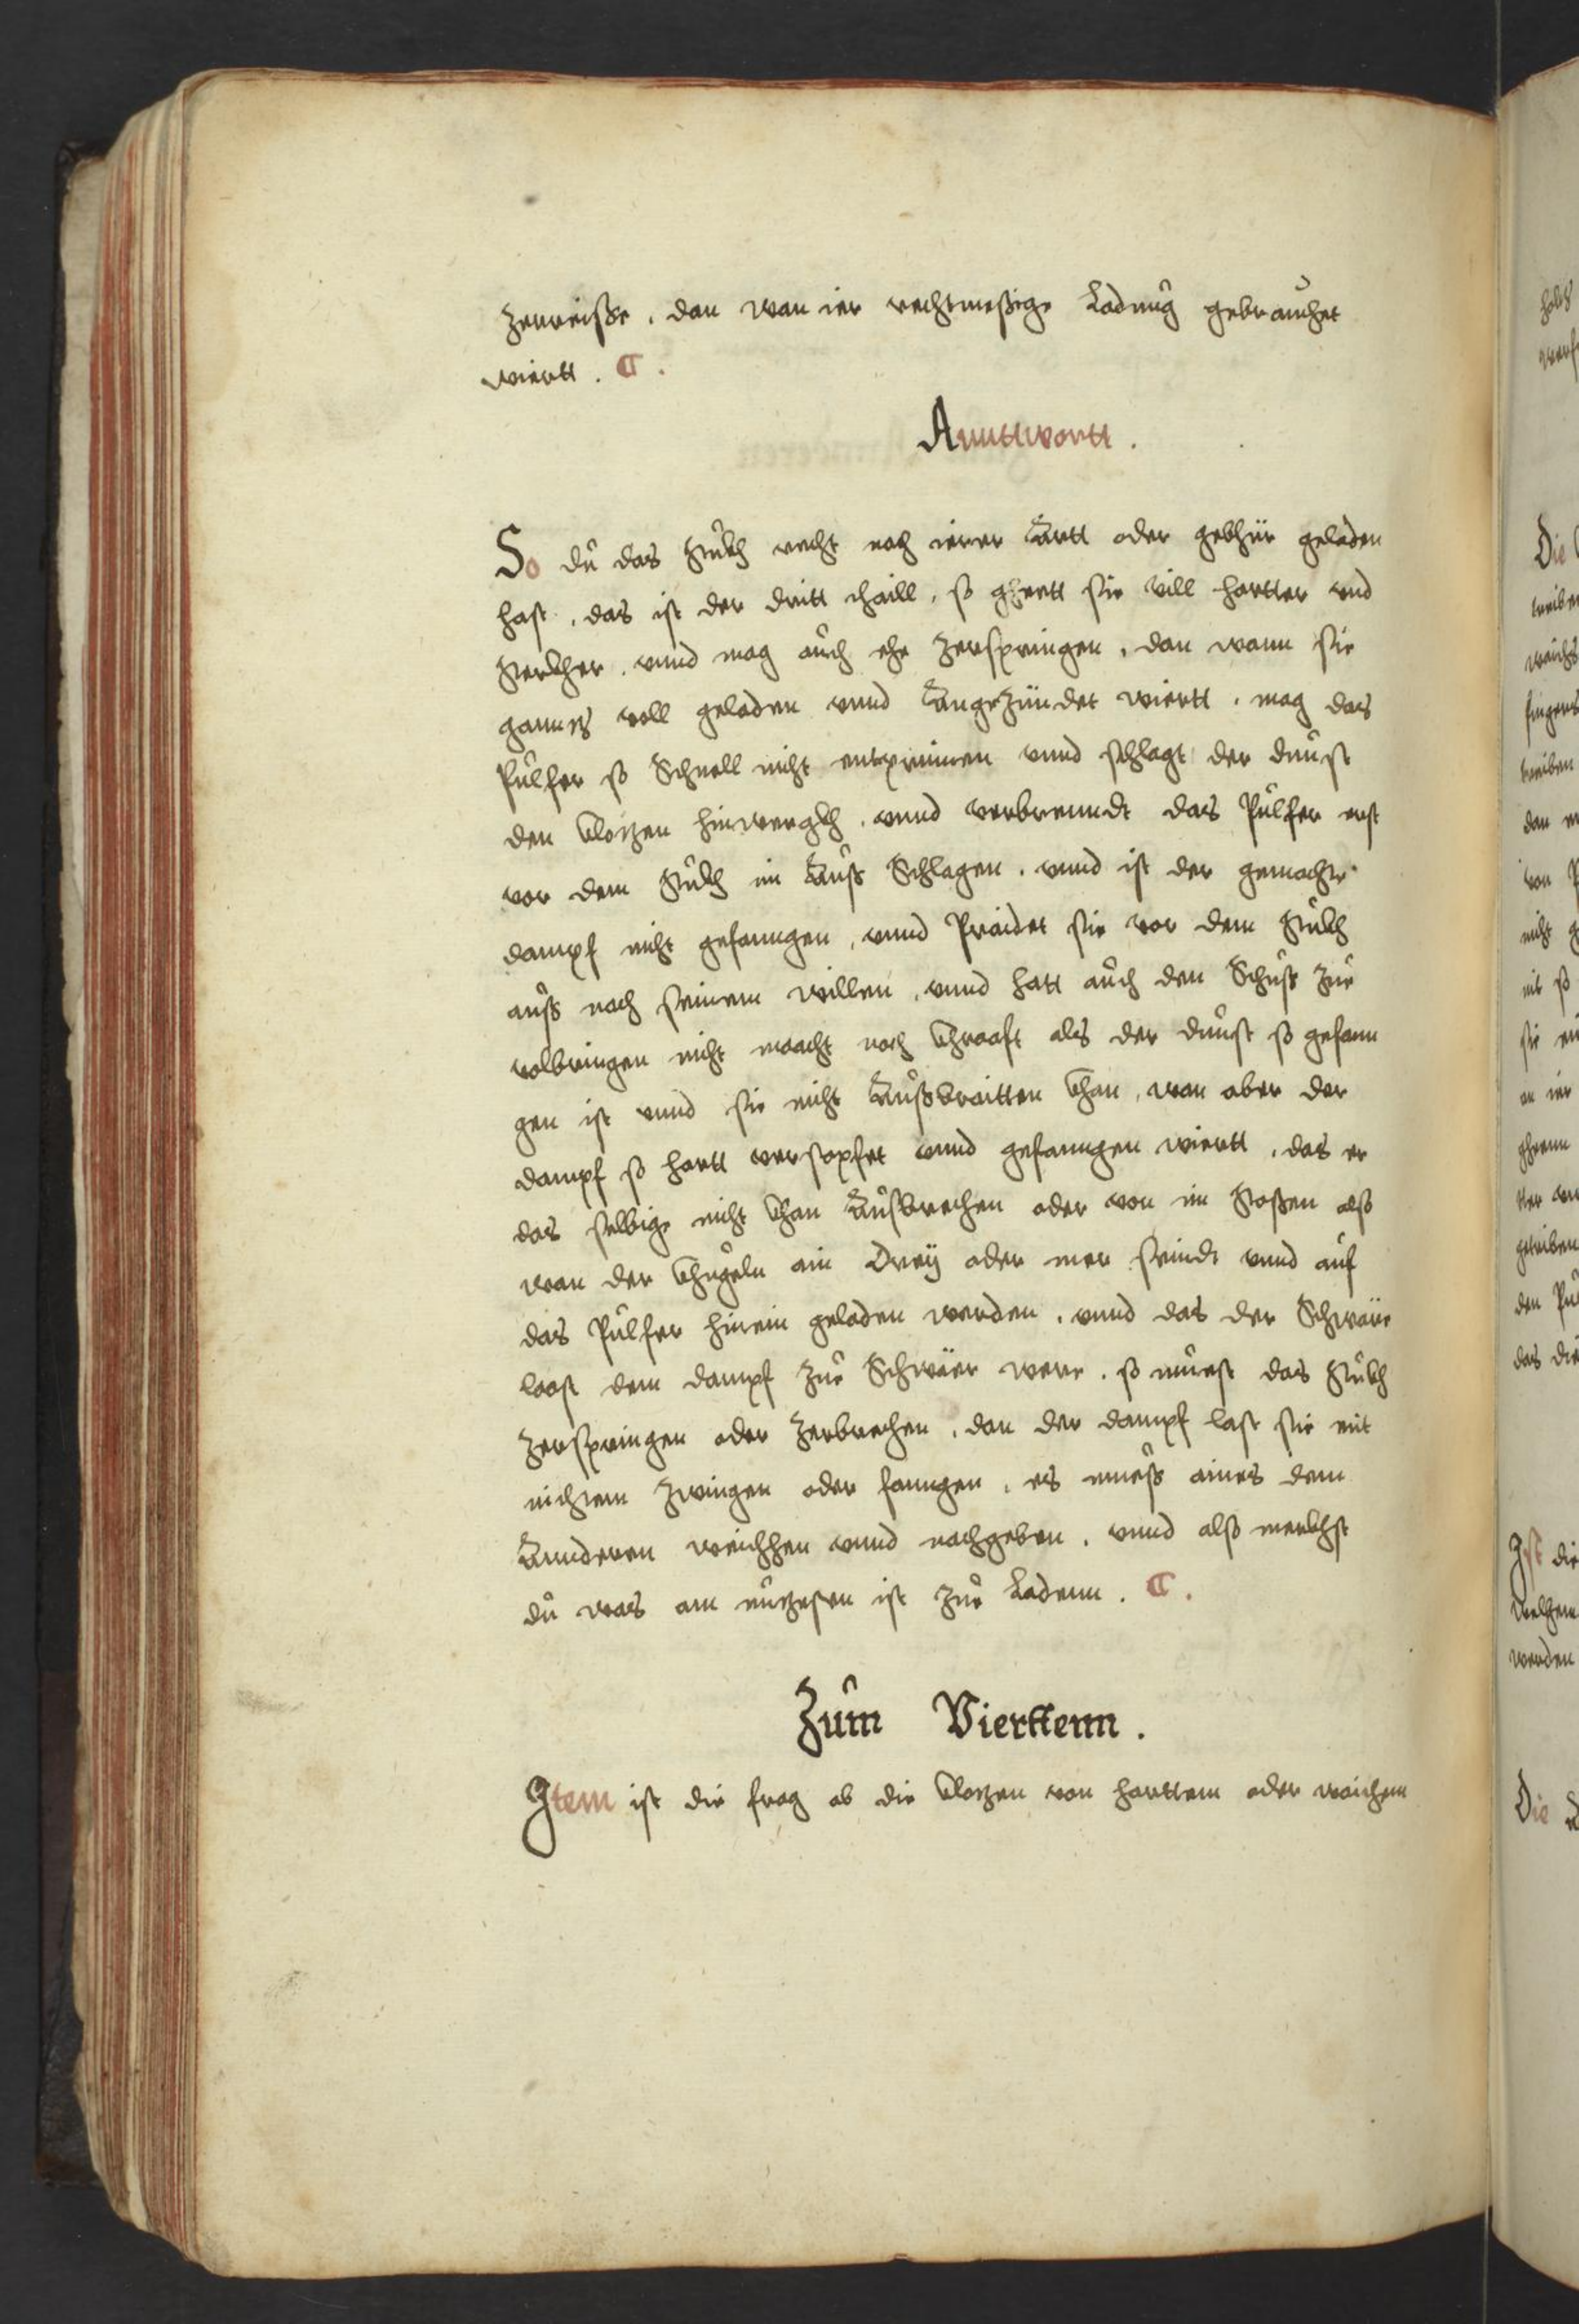 zerreisse . dan wan ier rechtmessige Ladung gebrauchet
wiertt . C .
Annttwortt .
So du das Stukh recht nach ierer Artt oder gebhür geladen
hast . das ist der dritt thaill . so ghertt sie vill hartter vnd
sterkher . vnnd mag auch ehe zerspringen . dan wann sie
gannz voll geladen vnnd Angezündet wiertt . mag das
Pulfer so Schnell nicht entprinnen vnnd schlagt der dunst
den klozen hinwergkh . vnnd verbrenndt das Pulfer erst
vor dem Stukh im Auß Schlagen . vnnd ist der gemachte
dampf nicht gefanngen , vnnd Praidet sie vor dem Stukh
auß nach seinem willen , vnnd hatt auch den Schuß zue
volbringen nicht macht noch khrafft als der dunst so gefann
gen ist vnnd sie nicht Außbraitten khan , wan aber der
dampf so hartt verstopfet vnnd gefanngen wiertt , das er
das selbige nicht khan Außbrechen oder von im stossen also
wan der khugeln ain Drey oder mer seindt vnnd auf
das Pulfer hinein geladen werden . vnnd das der Schwäre
last dem dampf zue Schwäer were . so muest das Stukh
zerspringen oder zerbrechen . dan der dampf last sie mit
nichtem zwingen oder fanngen . es muess aines dem
Annderen weichhen vnnd nachgeben . vnnd also merkhst
du was am nuzesten ist zue Ladenn . C .
Zum Vierttenn .
Item ist die frag ob die klozen von harttem oder waichem